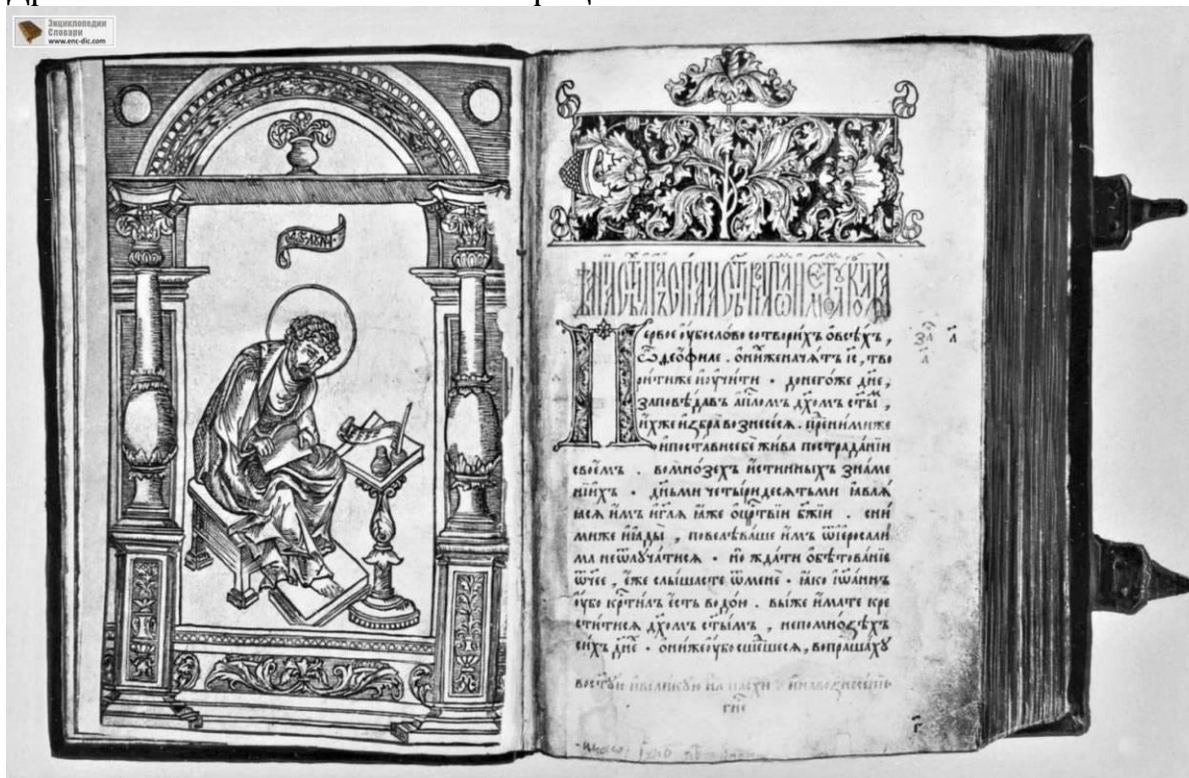 Энциклопедии
Словари
www.enc-dic.com
Первое оубо слово сотвори́хъ о всѣ́хъ,
ѽ Део́филе . о ни́хже начя́тъ і҃с, тво
ри́ти же и оучи́ти · до него́же дн҃е,
запове́дав ап҃ломъ дх҃омъ ст҃ы́м,
и́хже избра вознесе́ся . пре ни́ми же
и постави себе́ жива по страда́нїи
свое́мъ . во мно́зехъ и́стинныхъ зна́ме
нїихъ · дн҃ьми четы́ридесятьми ꙗвля́
ꙗся и́мъ и гл҃я ꙗже о цр҃твїи бж҃їи . с ни́
ми же и ꙗды̀ , повелѣва́ше и́мъ ѿ іеросали
ма не ѿлуча́тися · но жда́ти обѣтова́нїе
ѡч҃ее , е́же слы́шасте ѿ менѐ · ꙗко іѡа́ннъ
оубо кр҃ти́лъ е́сть водо́ю . вы́ же и́мате кре
сти́тися дх҃омъ ст҃ы́мъ , не по мно́зѣхъ
си́хъ дн҃е · они́ же оубо сше́дшеся, вопраша́ху